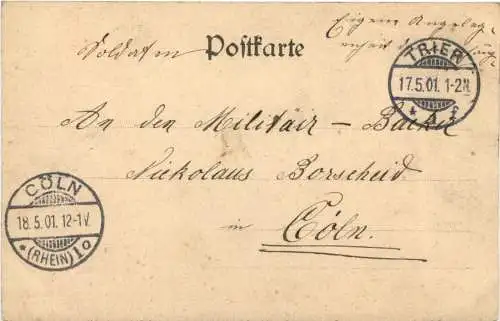 Eigene Angeleg-
enheit des
Soldaten Postkarte
TRIER
17.5.01. 1-2N.
* 1 f
An den Militär-Bäcker
Nikolaus Borscheid
in Cöln.
CÖLN
18.5.01. 12-1V.
*(RHEIN)1o